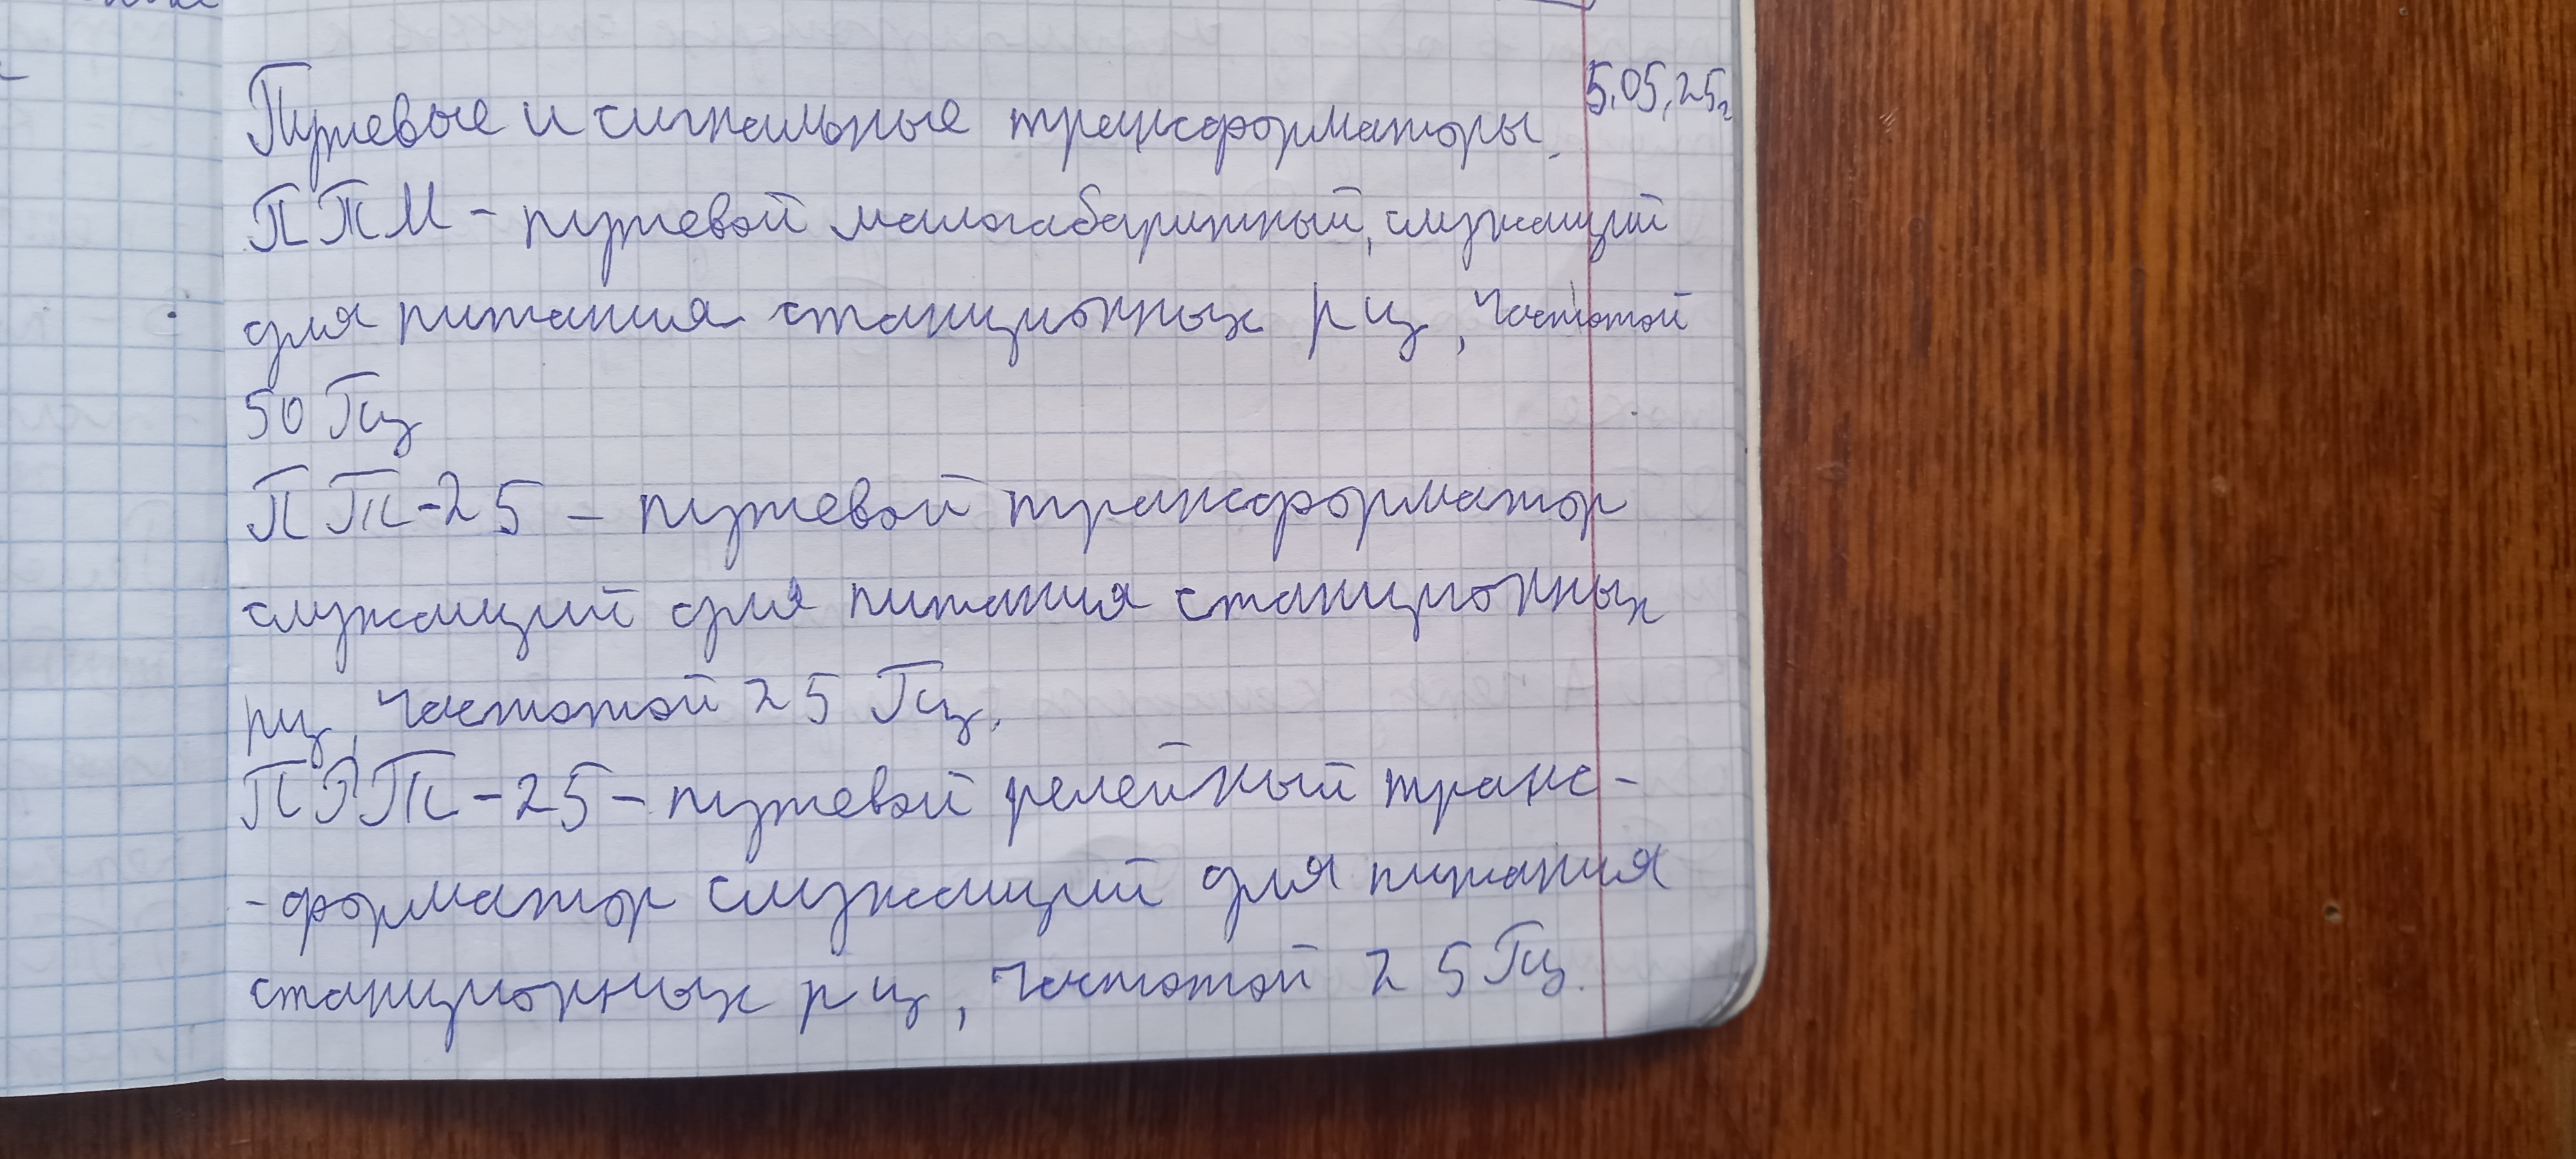 5.05.25г
Путевые и сигнальные трансформаторы.
ПТМ - путевой малогабаритный, служащий
для питания станционных рц, частотой
50 Гц
ПТ-25 - путевой трансформатор
служащий для питания станционных
рц, частотой 25 Гц.
ПРТ-25 - путевой релейный транс-
-форматор служащий для питания
станционных рц, частотой 25 Гц.